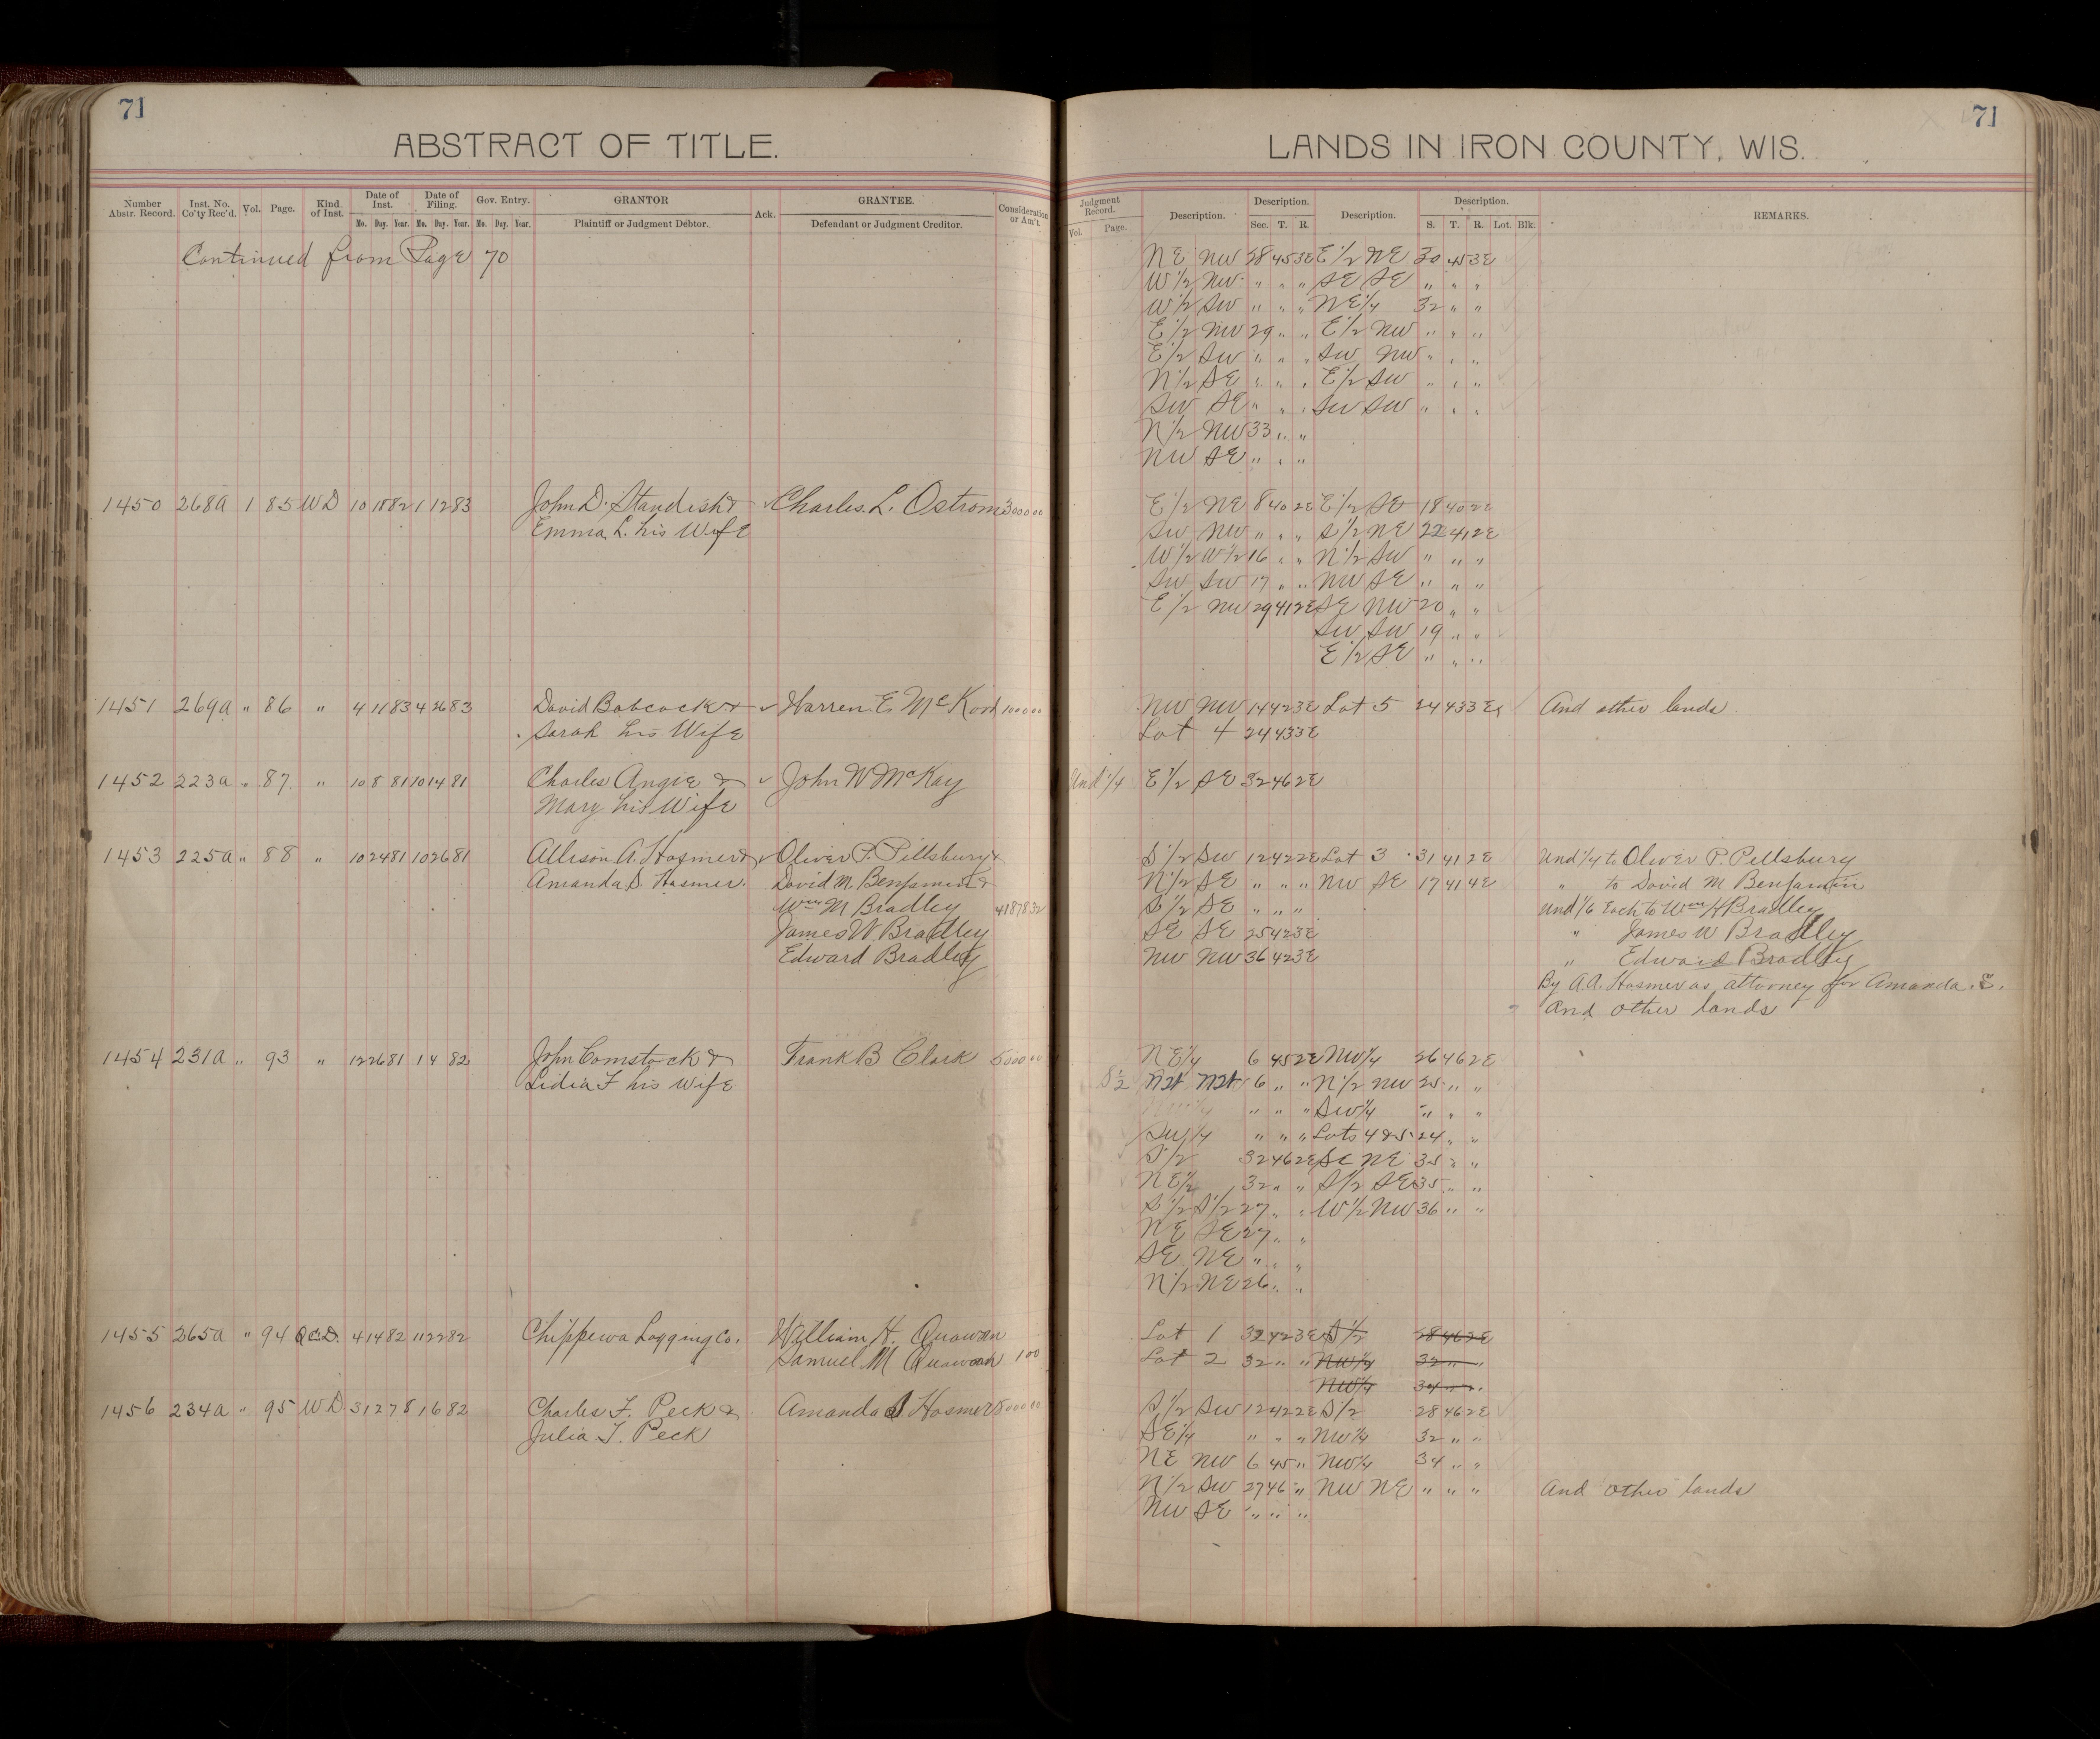 71
ABSTRACT OF TITLE.
Number Abstr. Record. Inst. No. Co'ty Rec'd. Vol. Page. Kind of Inst. Date of Inst. Date of Filing. Gov. Entry. GRANTOR Ack. GRANTEE. Consideration or Am't.
Mo. Day. Year. Mo. Day. Year. Mo. Day. Year. Plaintiff or Judgment Debtor. Defendant or Judgment Creditor.
Continued from Page 70
1450 268a 1 85 WD 10 18 82 1 12 83 John D. Standish & Charles. L. Ostrom 3000 00
Emma L. his Wife
1451 269a " 86 " 4 11 83 4 26 83 David Babcock & Warren E McKord 100 00
Sarah his Wife
1452 223a " 87 " 10 8 81 10 14 81 Charles Angie & John W McKay
Mary his Wife
1453 225a " 88 " 10 24 81 10 26 81 Allison A. Hosmer & Oliver P. Pillsbury &
Amanda S. Hosmer. David M. Benjamin &
Wm M Bradley 41878 32
James W Bradley
Edward Bradley
1454 231a " 93 " 12 26 81 1 4 82 John Comstock & Frank B Clark 5000 00
Lidia F his Wife
1455 265a " 94 Q.C.D. 4 14 82 11 22 82 Chippewa Logging Co. William H.
Samuel M 1 00
1456 234a " 95 WD 3 12 78 1 6 82 Charles F. Peck & Amanda S Hosmer 8000 00
Julia F. Peck
71
LANDS IN IRON COUNTY, WIS.
Judgment Record. Description. Description. Description. Description. REMARKS.
Vol. Page. Sec. T. R. S. T. R. Lot. Blk.
NE NW 28 45 3E E½ NE 30 45 3E
W½ NW " " " SE SE " " "
W½ SW " " " NE¼ 32 " "
E½ NW 29 " " E½ NW " " "
E½ SW " " " SW NW " " "
N½ SE " " " E½ SW " " "
SW SE " " " SW SW " " "
N½ NW 33 " "
NW SE " " "
E½ NE 8 40 2E E½ SE 18 40 2E
SW NW " " " S½ NE 22 41 2E
W½ W½ 16 " " N½ SW " " "
SW SW 17 " " NW SE " " "
E½ NW 29 41 2E SE NW 20 " "
SW SW 19 " "
E½ SE " " "
NW NW 14 42 3E Lot 5 24 43 3E And other lands
Lot 4 24 43 3E
Und ¼ E½ SE 32 46 2E
S½ SW 12 42 2E Lot 3 31 41 2E Und ¼ to Oliver P. Pillsbury
N½ SE " " " NW SE 17 41 4E " to David M Benjamin
S½ SE " " " Und 1/6 Each to Wm H Bradley
SE SE 25 42 3E " James W Bradley
NW NW 36 42 3E " Edward Bradley
By A.A. Hosmer as attorney for Amanda. S.
And other lands
NE¼ 6 45 2E NW¼ 26 46 2E
S½ 6 " " N½ NW 25 " "
NW¼ " " " SW¼ " " "
SW¼ " " " Lots 4 & 5 24 " "
S½ 32 46 2E SE NE 35 " "
NE½ 32 " " S½ SE 35 " "
S½ S½ 27 " " W½ NW 36 " "
NE SE 27 " "
SE NE " " "
N½ NE 26 " "
Lot 1 32 42 3E S½ 28 46 2E
Lot 2 32 " " NW¼ 32 " "
NW¼ 34 " "
S½ SW 12 42 2E S½ 28 46 2E
SE¼ " " " NW¼ 32 " "
NE NW 6 45 " NW¼ 34 " "
N½ SW 27 46 " NW NE " " " And other lands
NW SE " " "